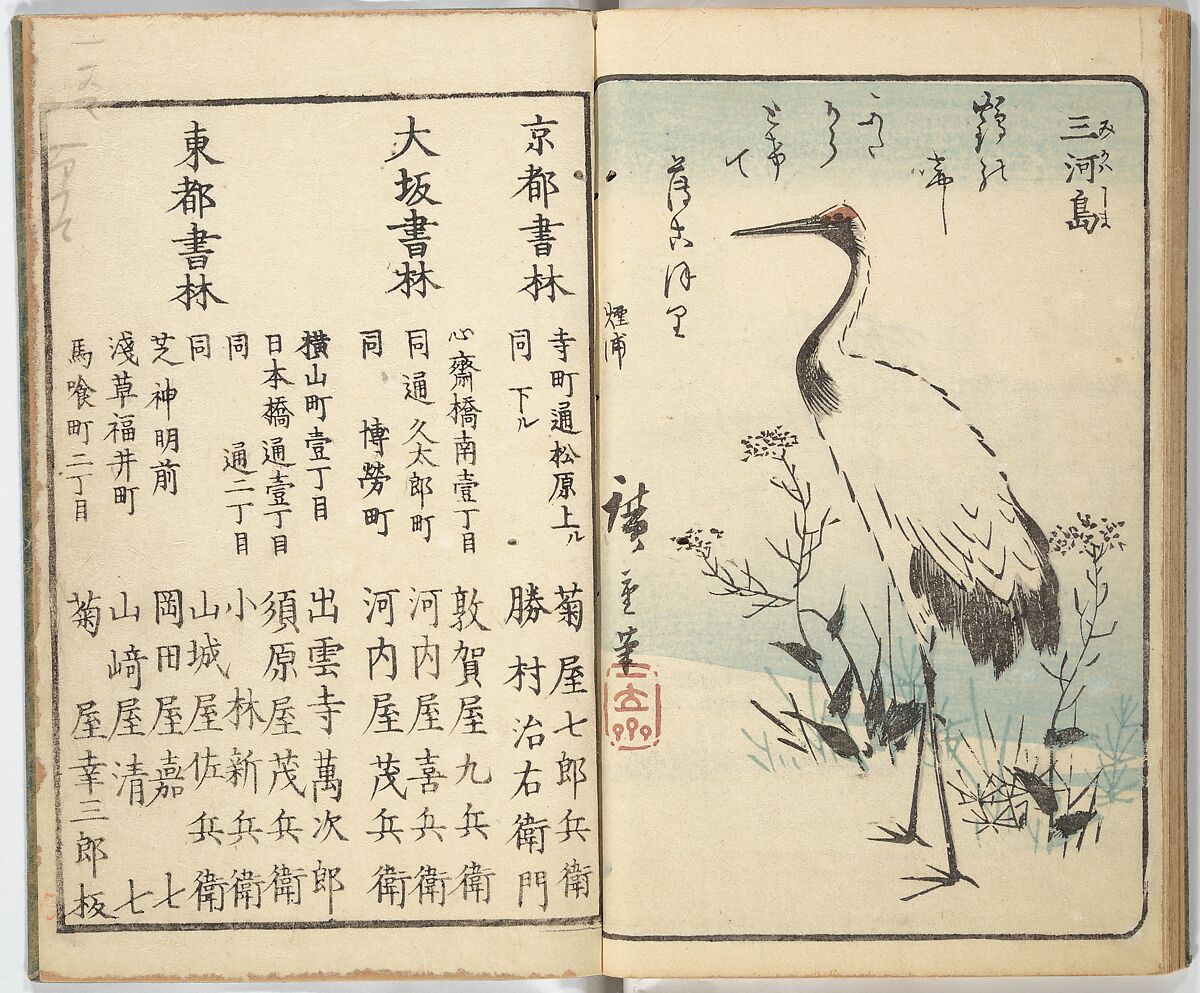 三河島
みかハしま
鶴の
啼
てより
煙浦
廣重筆
京都書林
寺町通松原上ル
菊屋七郎兵衛
同 下ル
勝村治右衛門
大坂書林
心齋橋南壹丁目
敦賀屋九兵衛
同通久太郎町
河内屋喜兵衛
同 博勞町
河内屋茂兵衛
東都書林
横山町壹丁目
出雲寺萬次郎
日本橋通壹丁目
須原屋茂兵衛
同 通二丁目
小林新兵衛
同
山城屋佐兵衛
芝神明前
岡田屋嘉七
淺草福井町
山﨑屋清七
馬喰町二丁目
菊屋幸三郎板